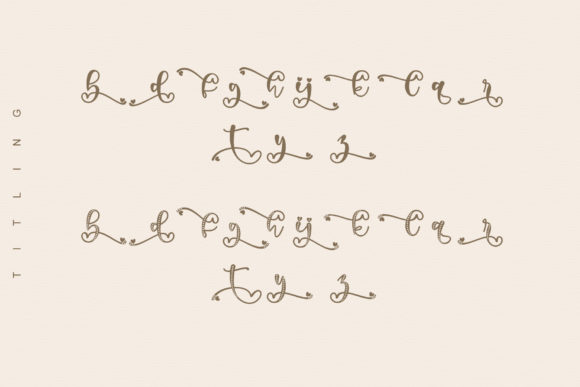 TITLING
b d f g h i j k l q r
t y z
b d f g h i j k l q r
t y z